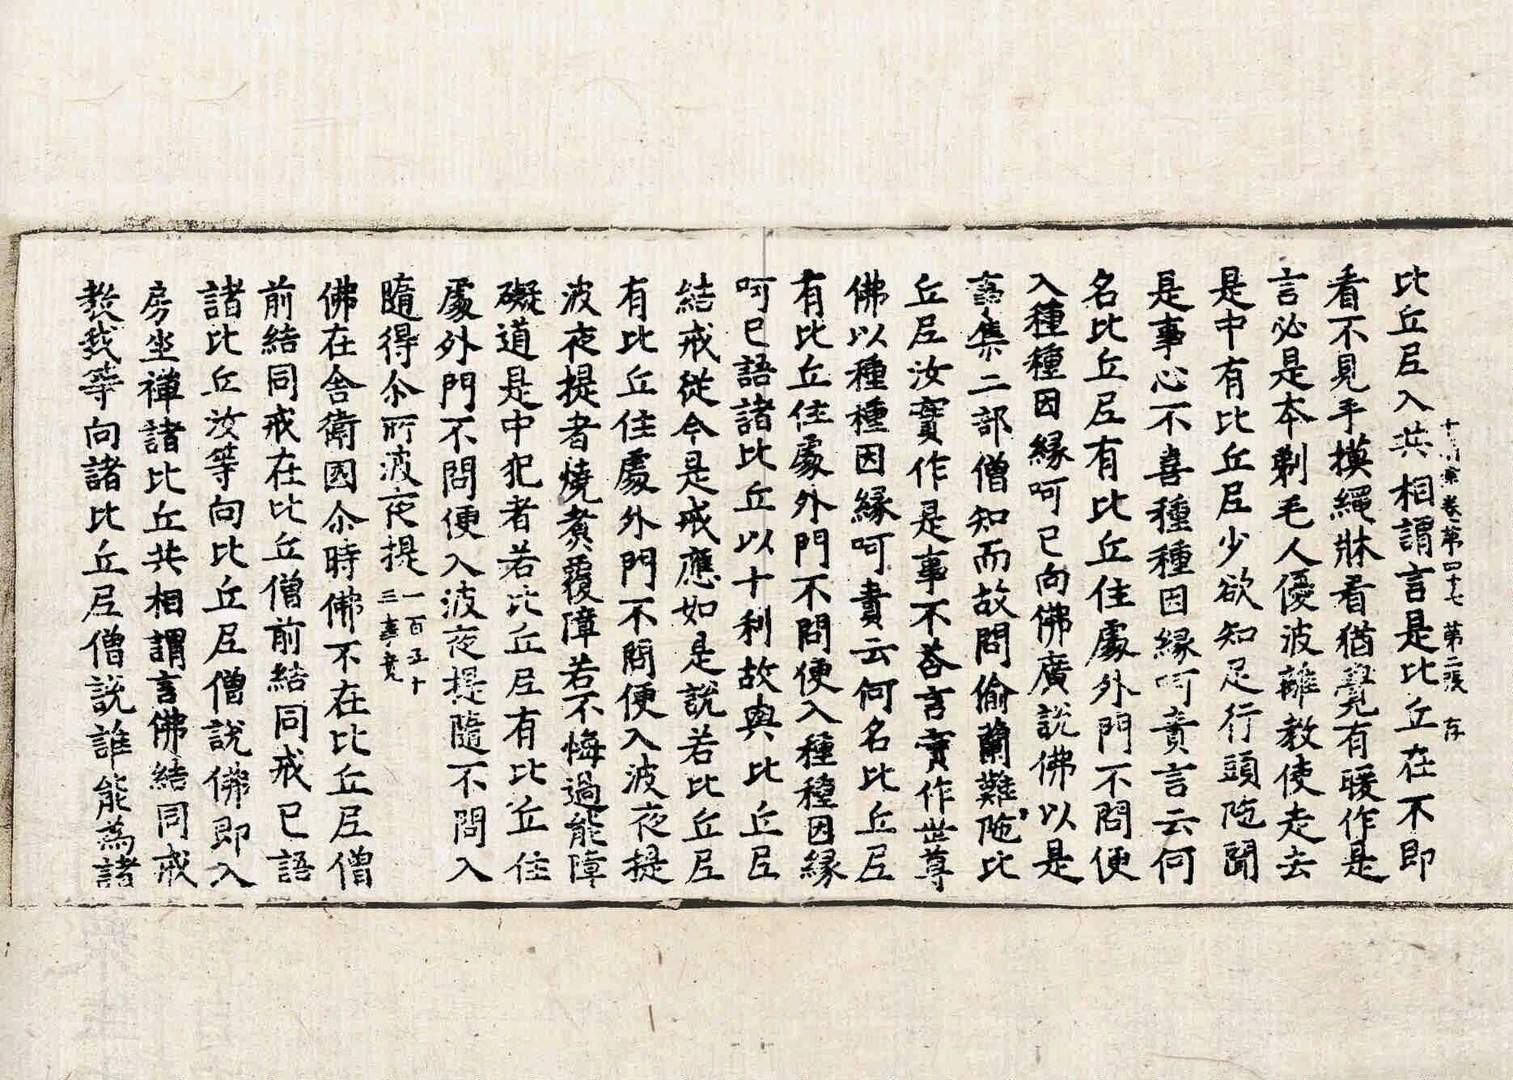 十誦律卷第四十七 第二張 存
比丘尼入共相謂言是比丘在不即
看不見手摸繩牀看猶覺有暖作是
言必是本剃毛人優波離教使走去
是中有比丘尼少欲知足行頭陁聞
是事心不喜種種因縁呵責言云何
名比丘尼有比丘住處外門不問便
入種種因縁呵已向佛廣說佛以是
事集二部僧知而故問偷蘭難陁比
丘尼汝實作是事不荅言實作世尊
佛以種種因縁呵責云何名比丘尼
有比丘住處外門不問便入種種因縁
呵已語諸比丘以十利故與比丘尼
結戒從今是戒應如是說若比丘尼
有比丘住處外門不問便入波夜提
波夜提者燒煑覆障若不悔過能障
礙道是中犯者若比丘尼有比丘住
處外門不問便入波夜提隨不問入
隨得尒所波夜提一百五十三事竟
佛在舍衛國尒時佛不在比丘尼僧
前結同戒在比丘僧前結同戒已語
諸比丘汝等向比丘尼僧說佛即入
房坐禪諸比丘共相謂言佛結同戒
教我等向諸比丘尼僧說誰能為諸